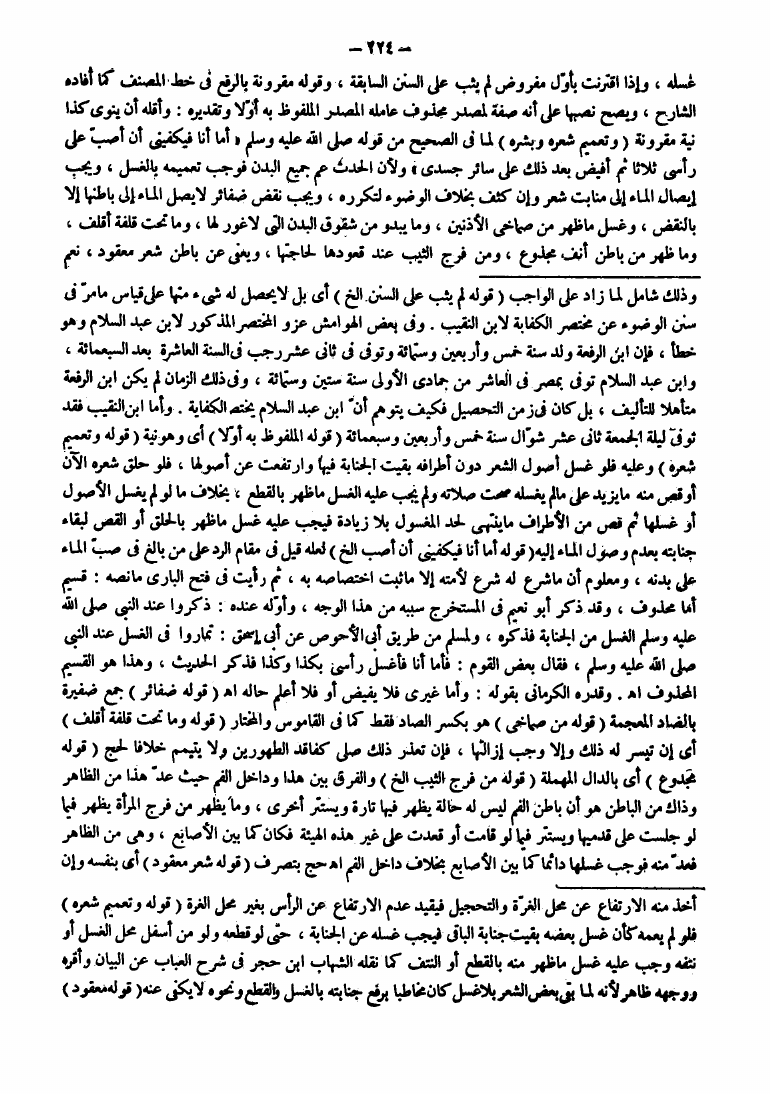 — ٢٢٤ —
غسله ، وإذا اقترنت بأوّل مفروض لم يثب على السنن السابقة ، وقوله مقرونة بالرفع فى خط المصنف كما أفاده
الشارح ، ويصح نصبها على أنه صفة لمصدر محذوف عامله المصدر الملفوظ به أوّلا وتقديره : وأقله أن ينوى كذا
نية مقرونة ( وتعميم شعره وبشره ) لما فى الصحيح من قوله صلى الله عليه وسلم « أما أنا فيكفينى أن أصبّ على
رأسى ثلاثا ثم أفيض بعد ذلك على سائر جسدى » ولأن الحدث عم جميع البدن فوجب تعميمه بالغسل ، ويجب
إيصال الماء إلى منابت شعر وإن كثف بخلاف الوضوء لتكرره ، ويجب نقض ضفائر لايصل الماء إلى باطنها إلا
بالنقض ، وغسل ماظهر من صماخى الأذنين ، وما يبدو من شقوق البدن التى لاغور لها ، وما تحت قلفة أقلف ،
وما ظهر من باطن أنف مجدوع ، ومن فرج الثيب عند قعودها لحاجتها ، ويعنى عن باطن شعر معقود ، نعم
وذلك شامل لما زاد على الواجب ( قوله لم يثب على السنن الخ ) أى بل لايحصل له شىء منها على قياس مامرّ فى
سنن الوضوء عن مختصر الكفاية لابن النقيب . وفى بعض الهوامش عزو المختصر المذكور لابن عبد السلام وهو
خطأ ، فإن ابن الرفعة ولد سنة خمس وأربعين وستمائة وتوفى فى ثانى عشر رجب فى السنة العاشرة بعد السبعمائة ،
وابن عبد السلام توفى بمصر فى العاشر من جمادى الأولى سنة ستين وستمائة ، وفى ذلك الزمان لم يكن ابن الرفعة
متأهلا للتأليف ، بل كان فى زمن التحصيل فكيف يتوهم أنّ ابن عبد السلام يختصر الكفاية . وأما ابن النقيب فقد
توفى ليلة الجمعة ثانى عشر شوّال سنة خمس وأربعين وسبعمائة ( قوله الملفوظ به أوّلا ) أى وهو نية ( قوله وتعميم
شعره ) وعليه فلو غسل أصول الشعر دون أطرافه بقيت الجنابة فيها وارتفعت عن أصولها ، فلو حلق شعره الآن
أو قص منه مايزيد على مالم يغسله صحت صلاته ولم يجب عليه الغسل ماظهر بالقطع ، بخلاف ما لو لم يغسل الأصول
أو غسلها ثم قص من الأطراف ماينتهى لحد المغسول بلا زيادة فيجب عليه غسل ماظهر بالحلق أو القص لبقاء
جنابته بعدم وصول الماء إليه ( قوله أما أنا فيكفينى أن أصب الخ ) لعله قيل فى مقام الرد على من بالغ فى صبّ الماء
على بدنه ، ومعلوم أن ماشرع له شرع لأمته إلا ماثبت اختصاصه به ، ثم رأيت فى فتح البارى مانصه : قسيم
أما محذوف ، وقد ذكر أبو نعيم فى المستخرج سببه من هذا الوجه ، وأوّله عنده : ذكروا عند النبى صلى الله
عليه وسلم الغسل من الجنابة فذكره ، ولمسلم من طريق أبى الأحوص عن أبى إسحق : تماروا فى الغسل عند النبى
صلى الله عليه وسلم ، فقال بعض القوم : فأما أنا فأغسل رأسى بكذا وكذا فذكر الحديث ، وهذا هو القسيم
المحذوف اه . وقدره الكرمانى بقوله : وأما غيرى فلا يفيض أو فلا أعلم حاله اه ( قوله ضفائر ) جمع ضفيرة
بالضاد المعجمة ( قوله من صماخى ) هو بكسر الصاد فقط كما فى القاموس والمختار ( قوله وما تحت قلفة أقلف )
أى إن تيسر له ذلك وإلا وجب إزالتها ، فإن تعذر ذلك صلى كفاقد الطهورين ولا يتيمم خلافا لحج ( قوله
مجدوع ) أى بالدال المهملة ( قوله من فرج الثيب الخ ) والفرق بين هذا وداخل الفم حيث عدّ هذا من الظاهر
وذاك من الباطن هو أن باطن الفم ليس له حالة يظهر فيها تارة ويستتر أخرى ، وما يظهر من فرج المرأة يظهر فيما
لو جلست على قدميها ويستتر فيما لو قامت أو قعدت على غير هذه الهيئة فكان كما بين الأصابع ، وهى من الظاهر
فعدّ منه فوجب غسلها دائما كما بين الأصابع بخلاف داخل الفم اه حج بتصرف ( قوله شعر معقود ) أى بنفسه وإن
أخذ منه الارتفاع عن محل الغرّة والتحجيل فيقيد عدم الارتفاع عن الرأس بغير محل الغرة ( قوله وتعميم شعره )
فلو لم يعمه كأن غسل بعضه بقيت جنابة الباقى فيجب غسله عن الجنابة ، حتى لو قطعه ولو من أسفل محل الغسل أو
نتفه وجب عليه غسل ماظهر منه بالقطع أو النتف كما نقله الشهاب ابن حجر فى شرح العباب عن البيان وأقره
ووجهه ظاهر لأنه لما بقى بعض الشعر بلا غسل كان مخاطبا برفع جنابته بالغسل والقطع ونحوه لايكنى عنه ( قوله معقود )